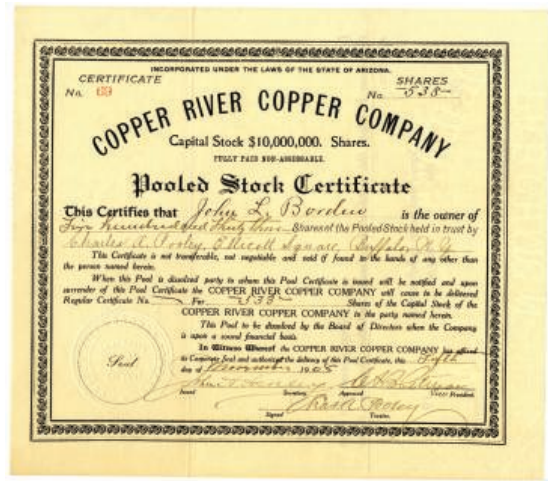 INCORPORATED UNDER THE LAWS OF THE STATE OF ARIZONA.
CERTIFICATE SHARES
No. No. 538
COPPER RIVER COPPER COMPANY
Capital Stock $10,000,000. Shares.
FULLY PAID NON-ASSESSABLE.
Pooled Stock Certificate
This Certifies that John L. Borden is the owner of
Five hundred and thirty Shares of the Pooled Stock held in trust by
Charles A. Pooley, Ellicott Square, Buffalo, N.Y.
This Certificate is not transferable, not negotiable and void if found in the hands of any other than
the person named herein.
When this Pool is dissolved party to whom this Pool Certificate is issued will be notified and upon
surrender of this Pool Certificate the COPPER RIVER COPPER COMPANY will cause to be delivered
Regular Certificate No. For 538 Shares of the Capital Stock of the
COPPER RIVER COPPER COMPANY to the party named herein.
This Pool to be dissolved by the Board of Directors when the Company
is upon a sound financial basis.
In Witness Whereof the COPPER RIVER COPPER COMPANY has affixed
its Corporate Seal and authorized the delivery of this Pool Certificate, this Fifth
day of November 1905
Seal
Issued Secretary Approved Vice President
Chas A Pooley
Signed Trustee.